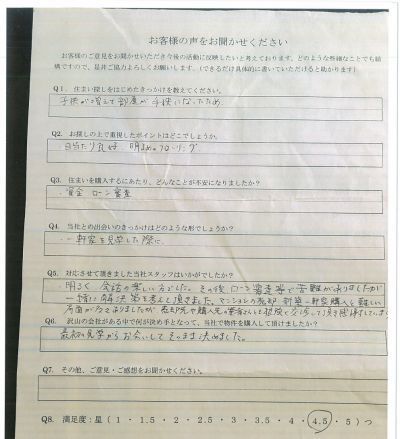 お客様の声をお聞かせください
お客様のご意見をお聞かせいただき今後の活動に反映したいと考えております。どのような些細なことでも結
構ですので、是非ご協力よろしくお願いします。(できるだけ具体的に書いていただけると助かります)
Q1. 住まい探しをはじめたきっかけを教えてください。
子供が増えて部屋が手狭になったため
Q2. お探しの上で重視したポイントはどこでしょうか。
・日当たり良好 明るめのフローリング
Q3. 住まいを購入するにあたり、どんなことが不安になりましたか?
・資金 ローン審査
Q4. 当社との出会いのきっかけはどのような形でしょうか?
・一軒家を見学した際に
Q5. 対応させて頂きました当社スタッフはいかがでしたか?
・明るく 会話の楽しい方でした。その後 ローン審査等で苦難がありましたが
一緒に解決策を考えて頂きました。マンションの売却 新築一軒家購入と難しい
局面が多々ありましたが 売却先や購入先の業者さんと根気よく交渉して頂き感謝しています
Q6. 沢山の会社がある中で何が決め手となって、当社で物件を購入して頂けましたか?
最初の見学からお会いしてそのまま決めました。
Q7. その他、ご意見・ご感想をお聞かせください。
Q8. 満足度:星 ( 1 ・ 1.5 ・ 2 ・ 2.5 ・ 3 ・ 3.5 ・ 4 ・ 4.5 ・ 5 ) つ